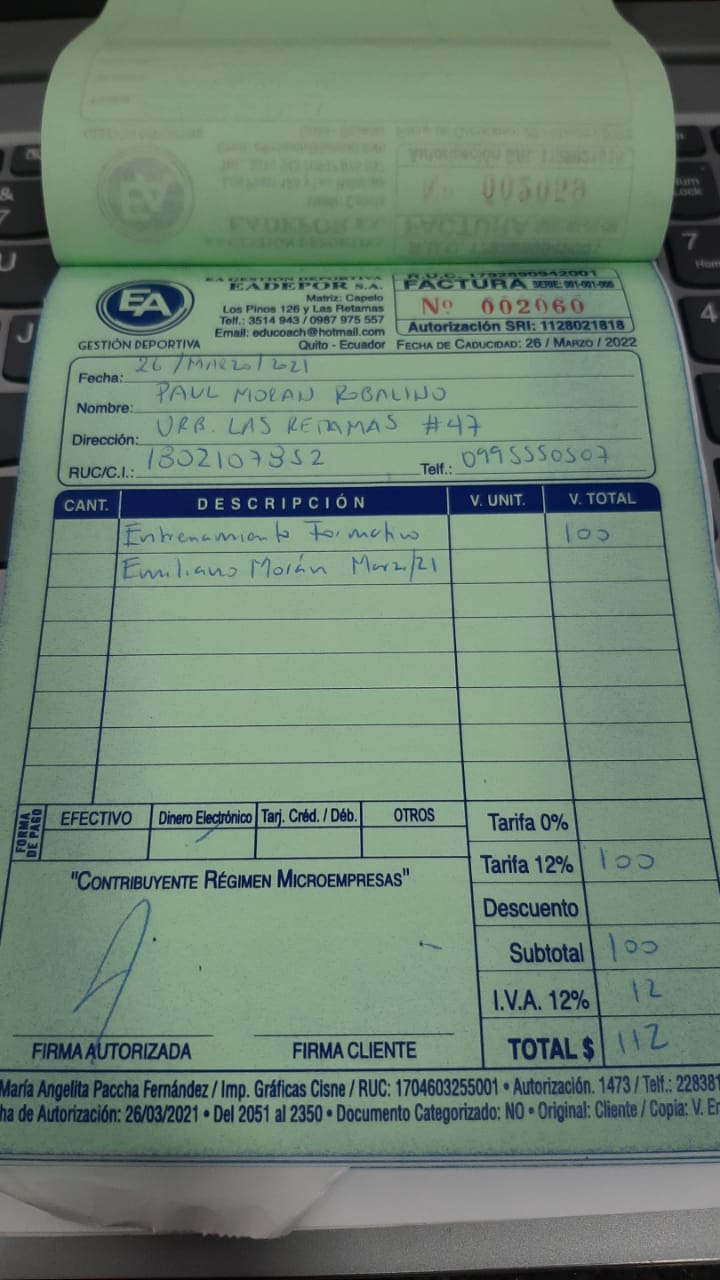 Nº 002059
EA
GESTIÓN DEPORTIVA
EA GESTIÓN DEPORTIVA
EADEPOR S.A.
Matriz: Capelo
Los Pinos 126 y Las Retamas
Telf.: 3514 943 / 0987 975 557
Email: educoach@hotmail.com
Quito - Ecuador
FACTURA SERIE: 001-001-000
Nº 002060
Autorización SRI: 1128021818
FECHA DE CADUCIDAD: 26 / MARZO / 2022
Fecha: 26/MARZO/2021
Nombre: PAUL MORAN ROBALINO
Dirección: URB. LAS RETAMAS #47
RUC/C.I.: 1802107352 Telf.: 0995550507
CANT. DESCRIPCIÓN V. UNIT. V. TOTAL
Entrenamiento Formativo 100
Emiliano Morán Marzo/21
FORMA DE PAGO
EFECTIVO Dinero Electrónico Tarj. Créd. / Déb. OTROS
Tarifa 0%
Tarifa 12% 100
"CONTRIBUYENTE RÉGIMEN MICROEMPRESAS"
Descuento
Subtotal 100
I.V.A. 12% 12
TOTAL $ 112
FIRMA AUTORIZADA FIRMA CLIENTE
María Angelita Paccha Fernández / Imp. Gráficas Cisne / RUC: 1704603255001 • Autorización. 1473 / Telf.: 228381
ha de Autorización: 26/03/2021 • Del 2051 al 2350 • Documento Categorizado: NO • Original: Cliente / Copia: V. Em